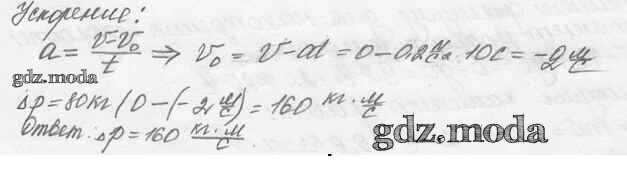 Ускорение:
a = (v-v₀)/t ⇒ v₀ = v-at = 0-0,2 м/с² · 10с = -2 м/с
gdz.moda
Δp = 80кг (0-(-2 м/с) = 160 кг·м/с
Ответ: Δp = 160 кг·м/с.
gdz.moda